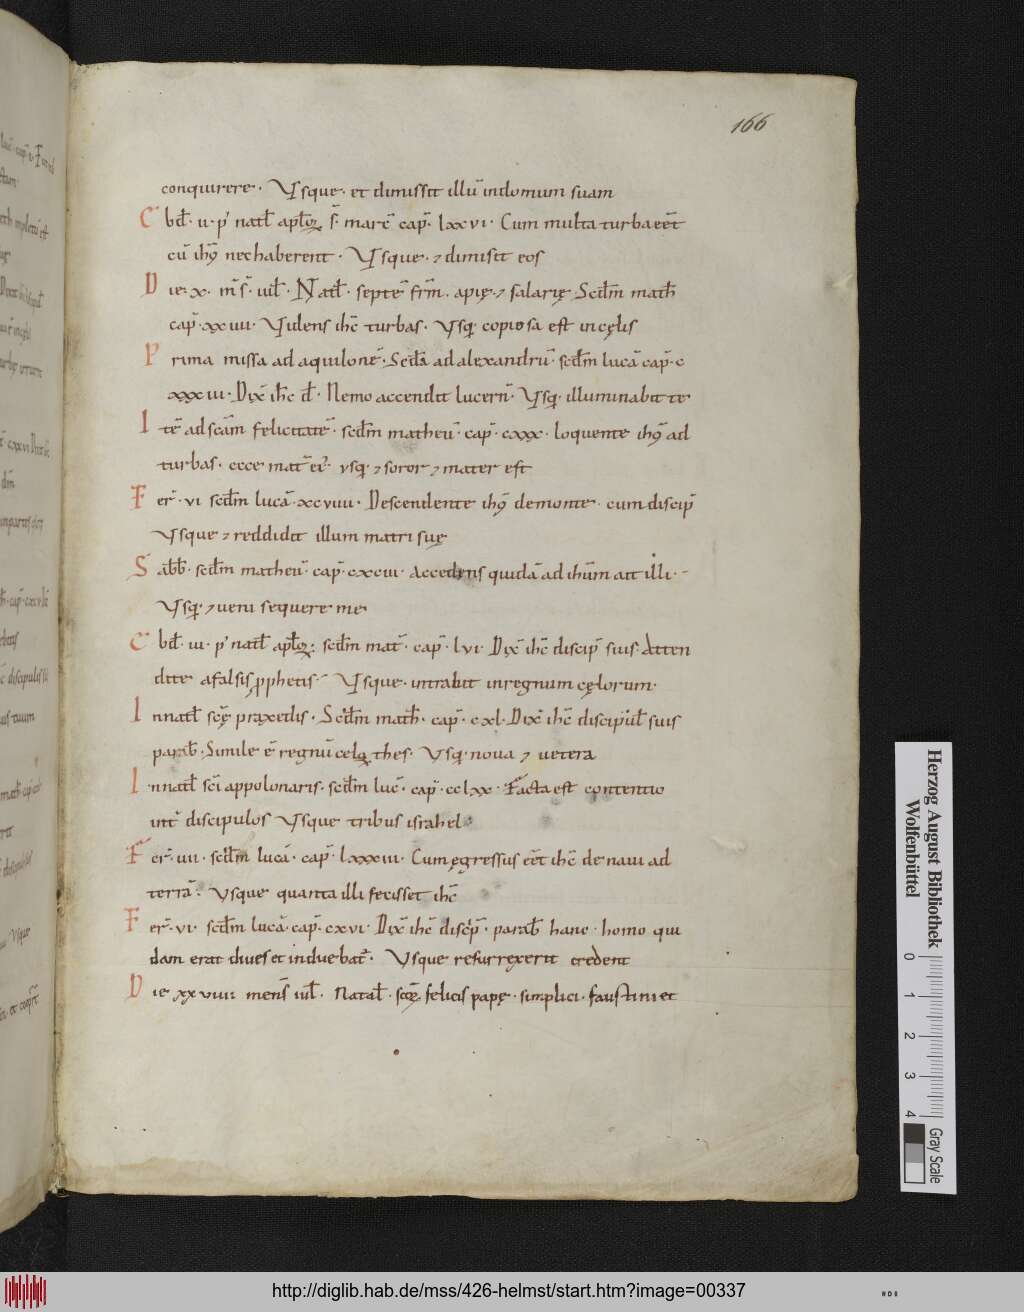 166
conquirere · Vsque · et dimissit illū in domum suam
Ebd̄ · ii · p' natł apłoꝝ · s̄ marc̄ cap̄ · lxxvi · Cum multa turba eēt
cū ihū nec haberent · Vsque · ⁊ dimisit eos
Die · x · m̄s̄ · iuł · Natł · septē fr̄m · apię · ⁊ salarię Scdm̄ math̄
cap̄ · xxiiii · Videns ihc̄ turbas · Vsq · copiosa est in cęlis
Prima missa ad aquilonē · Scda ad alexandrū · scdm̄ lucā cap̄ · c
xxxiii · Dix̄ ihc̄ d̄ · Nemo accendit lucern̄ · Vsq · illuminabit te
Itē ad scām felicitatē · scdm̄ matheū · cap̄ · cxxx · loquente ihū ad
turbas · ecce mat̄ ei' · vsq · ⁊ soror ⁊ mater est
Fer̄ · vi scdm̄ lucā · xcviiii · Descendente ihū de monte · cum discip̄
Vsque ⁊ reddidit illum matri suę
Sabb̄ · scdm̄ matheū · cap̄ · cxciii · Accedens quidā ad ihūm ait illi ·
Vsq · ⁊ veni sequere me
Ebd̄ · iii · p' natł apłoꝝ · scdm̄ mat̄ · cap̄ · lvi · Dix̄ ihc̄ discip̄ suis · Atten
dite a falsis prophetis · Vsque · intrabit in regnum cęlorum ·
In natł scę praxedis · Scdm̄ math̄ · cap̄ · cxl · Dix̄ ihc̄ discipuł suis
parab̄ · Simile ē regnū celoꝝ thes · Vsq · nova ⁊ vetera
In natł sci appolonaris · scdm̄ luc̄ · cap̄ · cclxx · Facta est contentio
int̄ discipulos Vsque tribus israhel
Fer̄ · iiii · scdm̄ lucā · cap̄ · lxxxiii · Cum egressus eēt ihc̄ de navi ad
terrā · Vsque quanta illi fecisset ihc̄
Fer̄ · vi · scdm̄ lucā · cap̄ · cxvi · Dix̄ ihc̄ discip̄ · parab̄ hanc · homo qui
dam erat dives et induebat' · Vsque resurrexerit credent
Die xxviiii mens̄ iuł · Natał · scoꝝ felicis pape · simplici · faustini et
Herzog August Bibliothek
Wolfenbüttel
0 1 2 3 4
Gray Scale
http://diglib.hab.de/mss/426-helmst/start.htm?image=00337